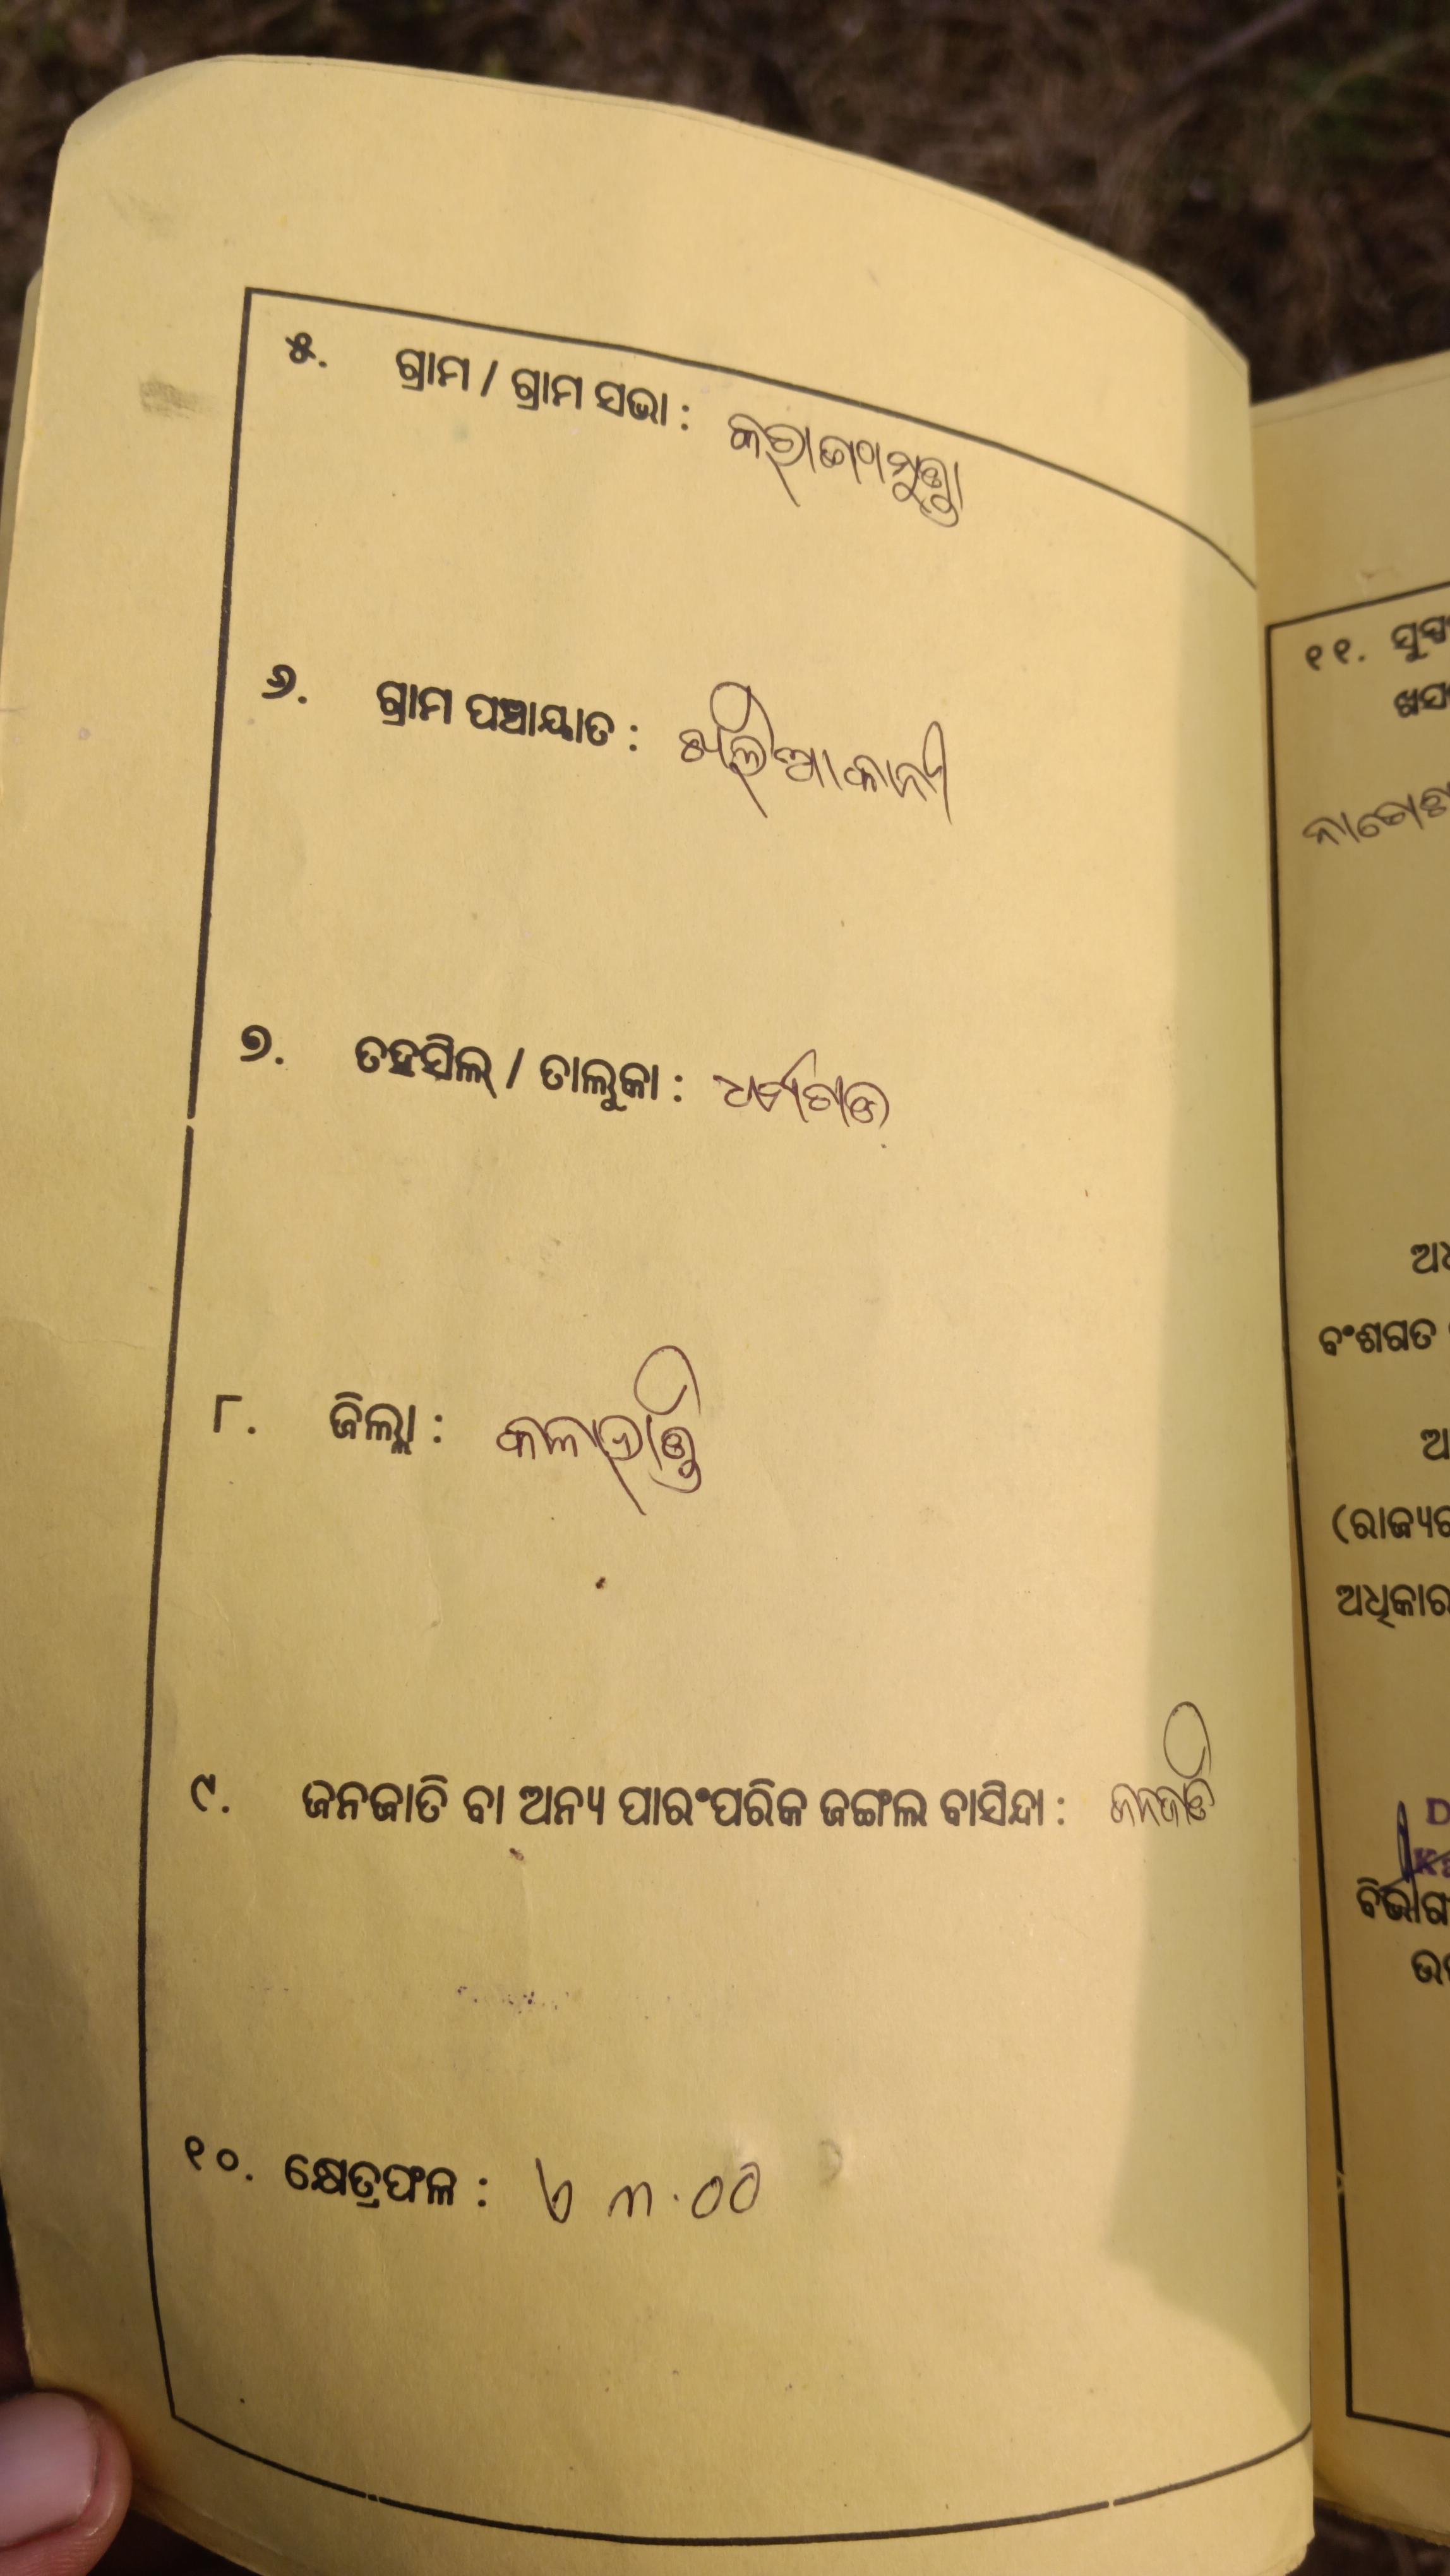 ୫. ଗ୍ରାମ / ଗ୍ରାମ ସଭା :
୬. ଗ୍ରାମ ପଞ୍ଚାୟାତ : ଖଲିଆକାନୀ
୭. ତହସିଲ୍ / ତାଲୁକା : ଧର୍ମଗଡ
୮. ଜିଲ୍ଲା : କଳାହାଣ୍ଡି
୯. ଜନଜାତି ବା ଅନ୍ୟ ପାରଂପରିକ ଜଙ୍ଗଲ ବାସିନ୍ଦା : ଜନଜାତି
୧୦. କ୍ଷେତ୍ରଫଳ : ୬୩.୦୦
୧୧.
ବଂଶଗତ
ଅଧିକାର